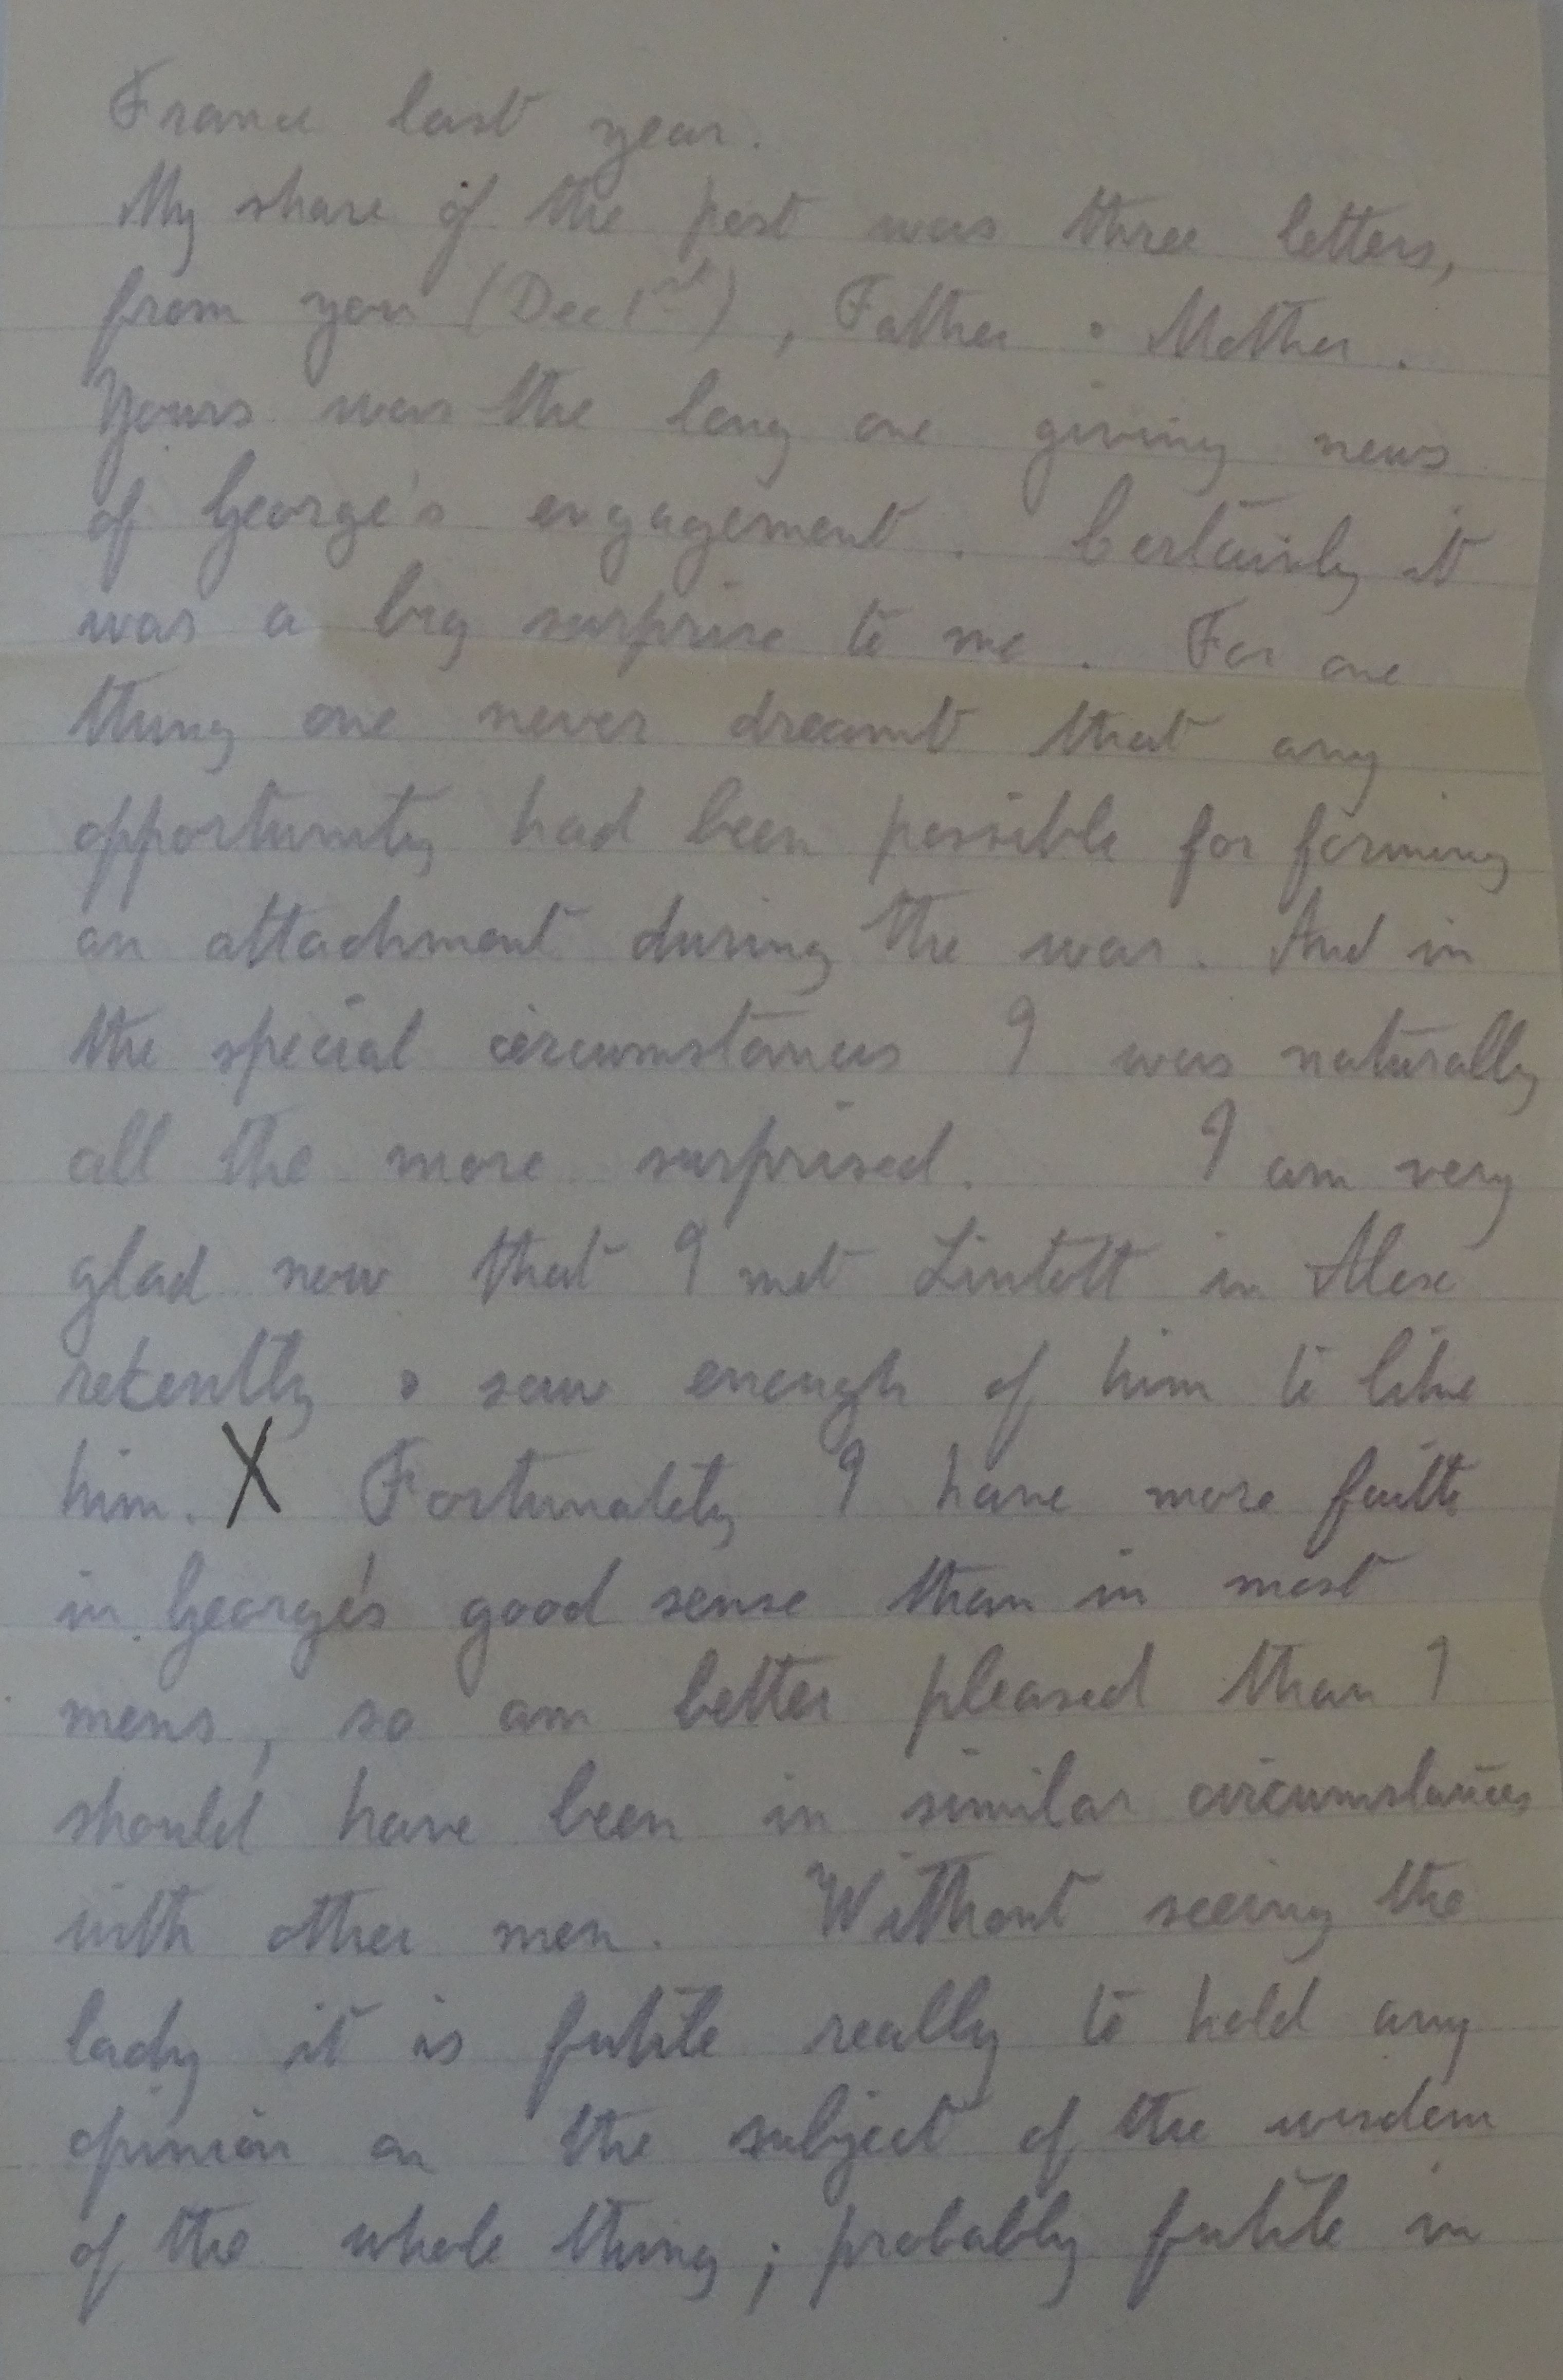 France last year.
My share of the post was three letters,
from you (Dec 1st), Father & Mother.
Yours was the long one giving news
of George's engagement. Certainly it
was a big surprise to me. For one
thing one never dreamt that any
opportunity had been possible for forming
an attachment during the war. And in
the special circumstances I was naturally
all the more surprised. I am very
glad now that I met Lintott in Alex
recently & saw enough of him to like
him. X Fortunately I have more faith
in George's good sense than in most
mens, so am better pleased than I
should have been in similar circumstances
with other men. Without seeing the
lady it is futile really to hold any
opinion on the subject of the wisdom
of the whole thing; probably futile in